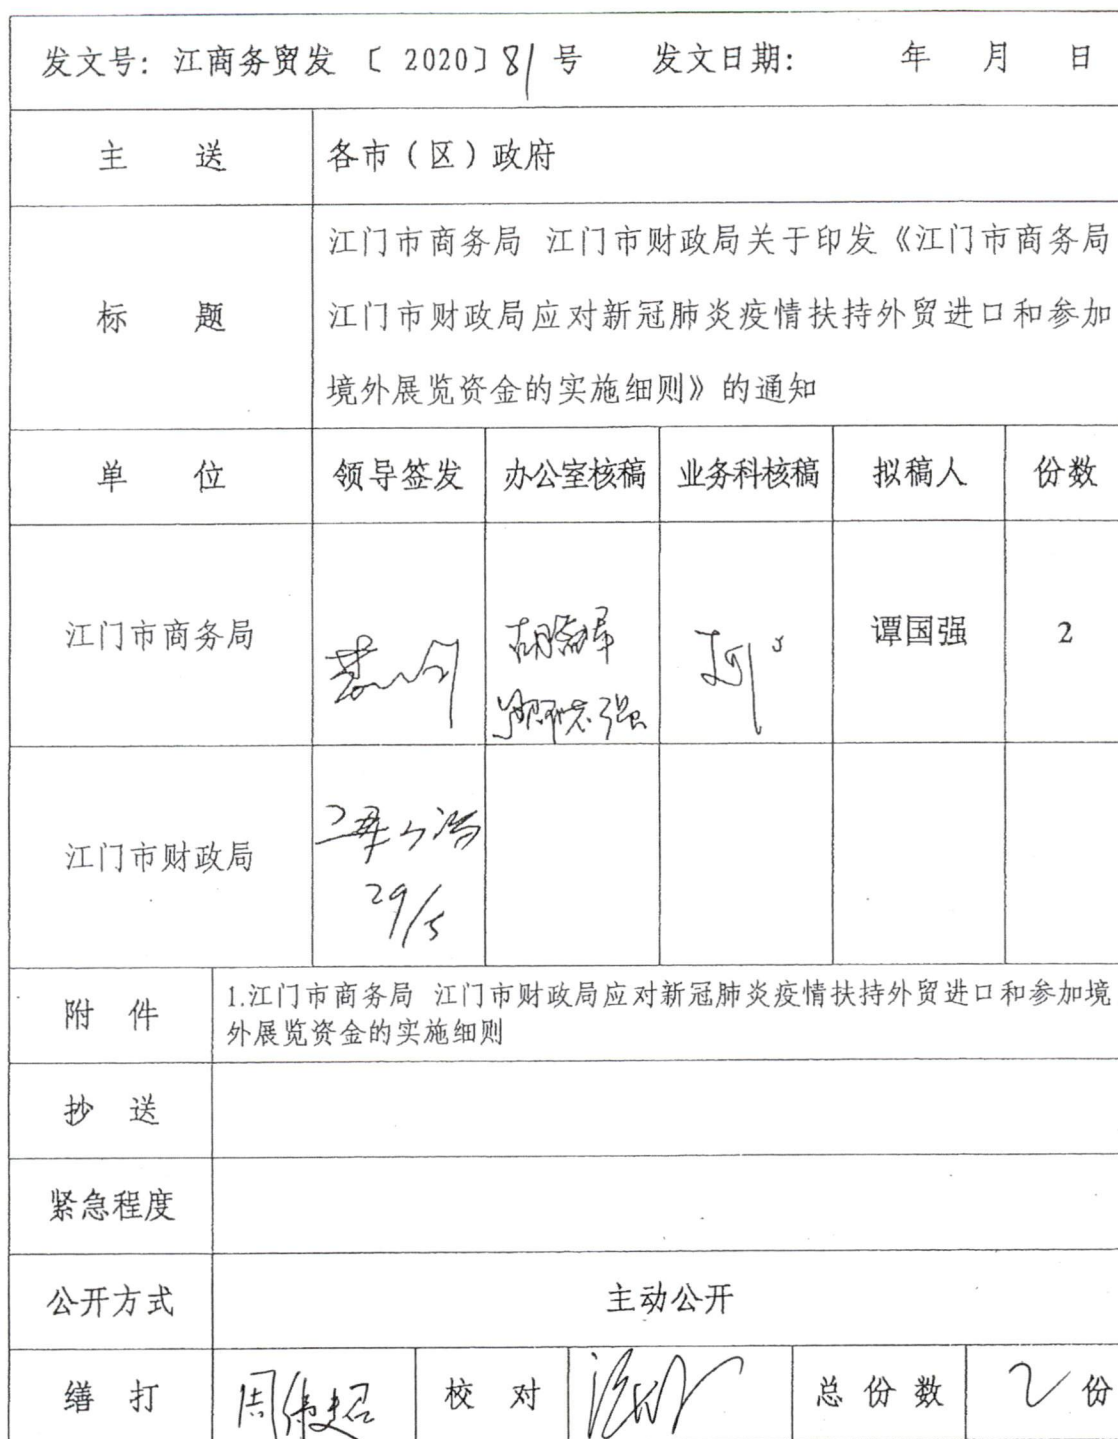 发文号：江商务贸发〔2020〕81号 发文日期： 年 月 日
主 送 各市（区）政府
江门市商务局 江门市财政局关于印发《江门市商务局
标 题 江门市财政局应对新冠肺炎疫情扶持外贸进口和参加
境外展览资金的实施细则》的通知
单 位 领导签发 办公室核稿 业务科核稿 拟稿人 份数
江门市商务局 谭国强 2
江门市财政局
29/5
附 件 1.江门市商务局 江门市财政局应对新冠肺炎疫情扶持外贸进口和参加境
外展览资金的实施细则
抄 送
紧急程度
公开方式 主动公开
缮 打 校 对 总 份 数 2 份